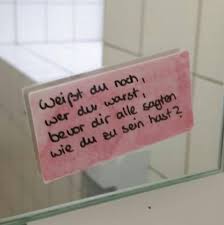 Weißt du noch,
wer du warst,
bevor dir alle sagten
wie du zu sein hast?